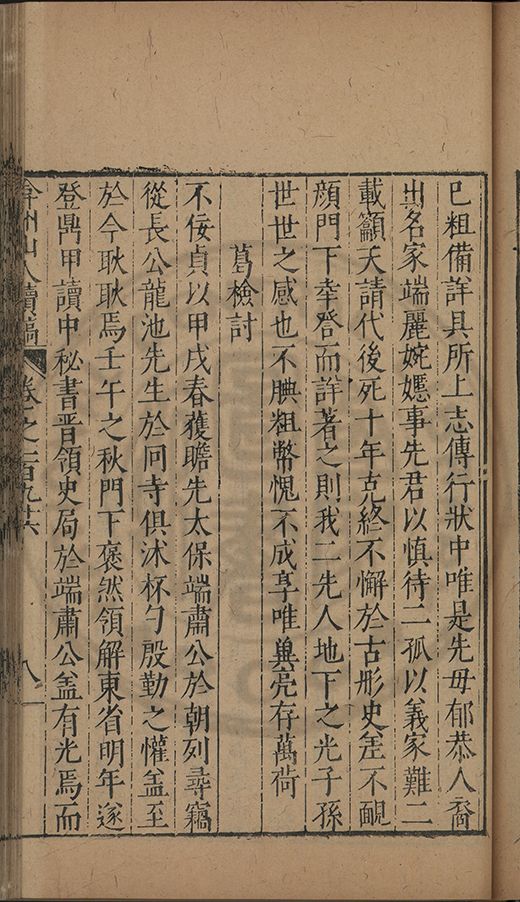 已粗備詳具所上志傳行狀中唯是先毋郁恭人裔
出名家端麗婉嫕事先君以慎待二孤以義家難二
載籲天請代後死十年克終不懈於古彤史差不靦
顏門下幸登而詳著之則我二先人地下之光子孫
世世之感也不腆粗幣愧不成享唯㒷亮存萬荷
葛檢討
不佞貞以甲戌春獲瞻先太保端肅公於朝列尋竊
從長公龍池先生於同寺俱沐杯勺殷勤之懽盖至
於今耿耿焉壬午之秋門下褎然領解東省明年遂
登鼎甲讀中秘書晋領史局於端肅公盖有光焉而
弇州山人續稿 卷之一百九十六 八